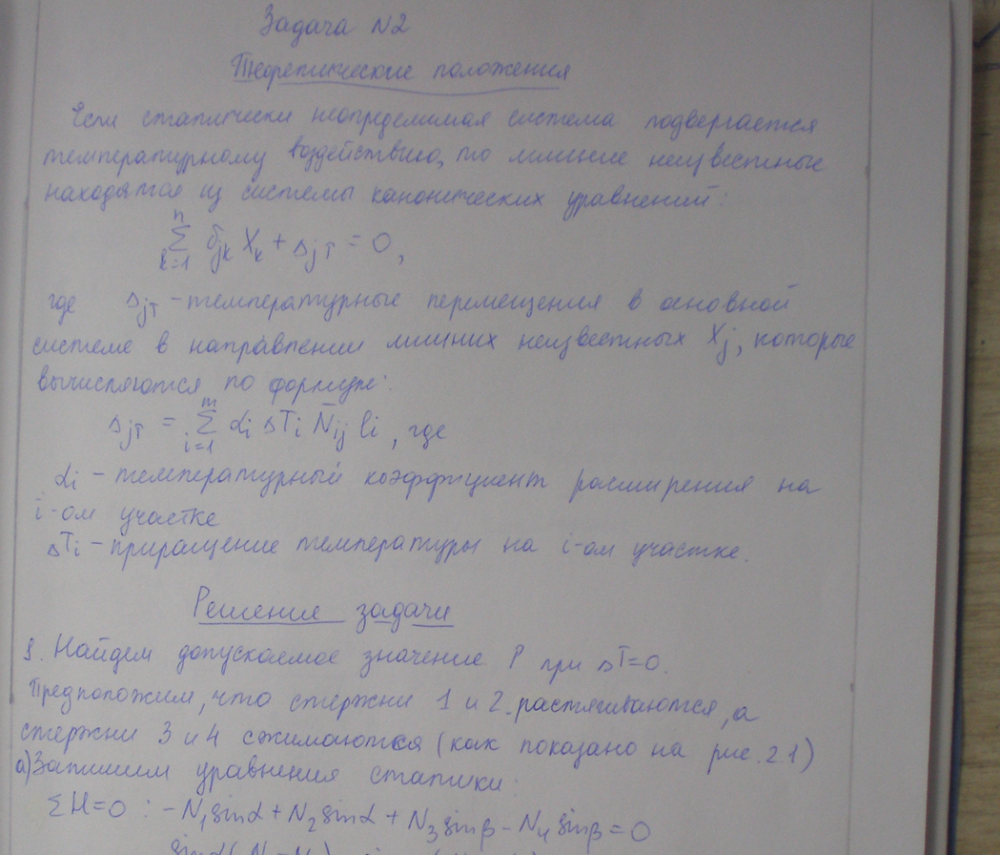 Задача N2
Теоретические положения
Если статически неопределимая система подвергается
температурному воздействию, то лишние неизвестные
находятся из системы канонических уравнений:
n
Σ δjk Xk + ΔjT = 0,
k=1
где ΔjT – температурные перемещения в основной
системе в направлении лишних неизвестных Xj, которые
вычисляются по формуле:
m
ΔjT = Σ αi ΔTi N̄ij li, где
i=1
αi – температурный коэффициент расширения на
i-ом участке
ΔTi – приращение температуры на i-ом участке.
Решение задачи
1. Найдем допускаемое значение P при ΔT=0.
Предположим, что стержни 1 и 2 растягиваются, а
стержни 3 и 4 сжимаются (как показано на рис. 2.1)
а) Запишем уравнения статики:
ΣH=0 : -N1 sinα + N2 sinα + N3 sinβ - N4 sinβ = 0